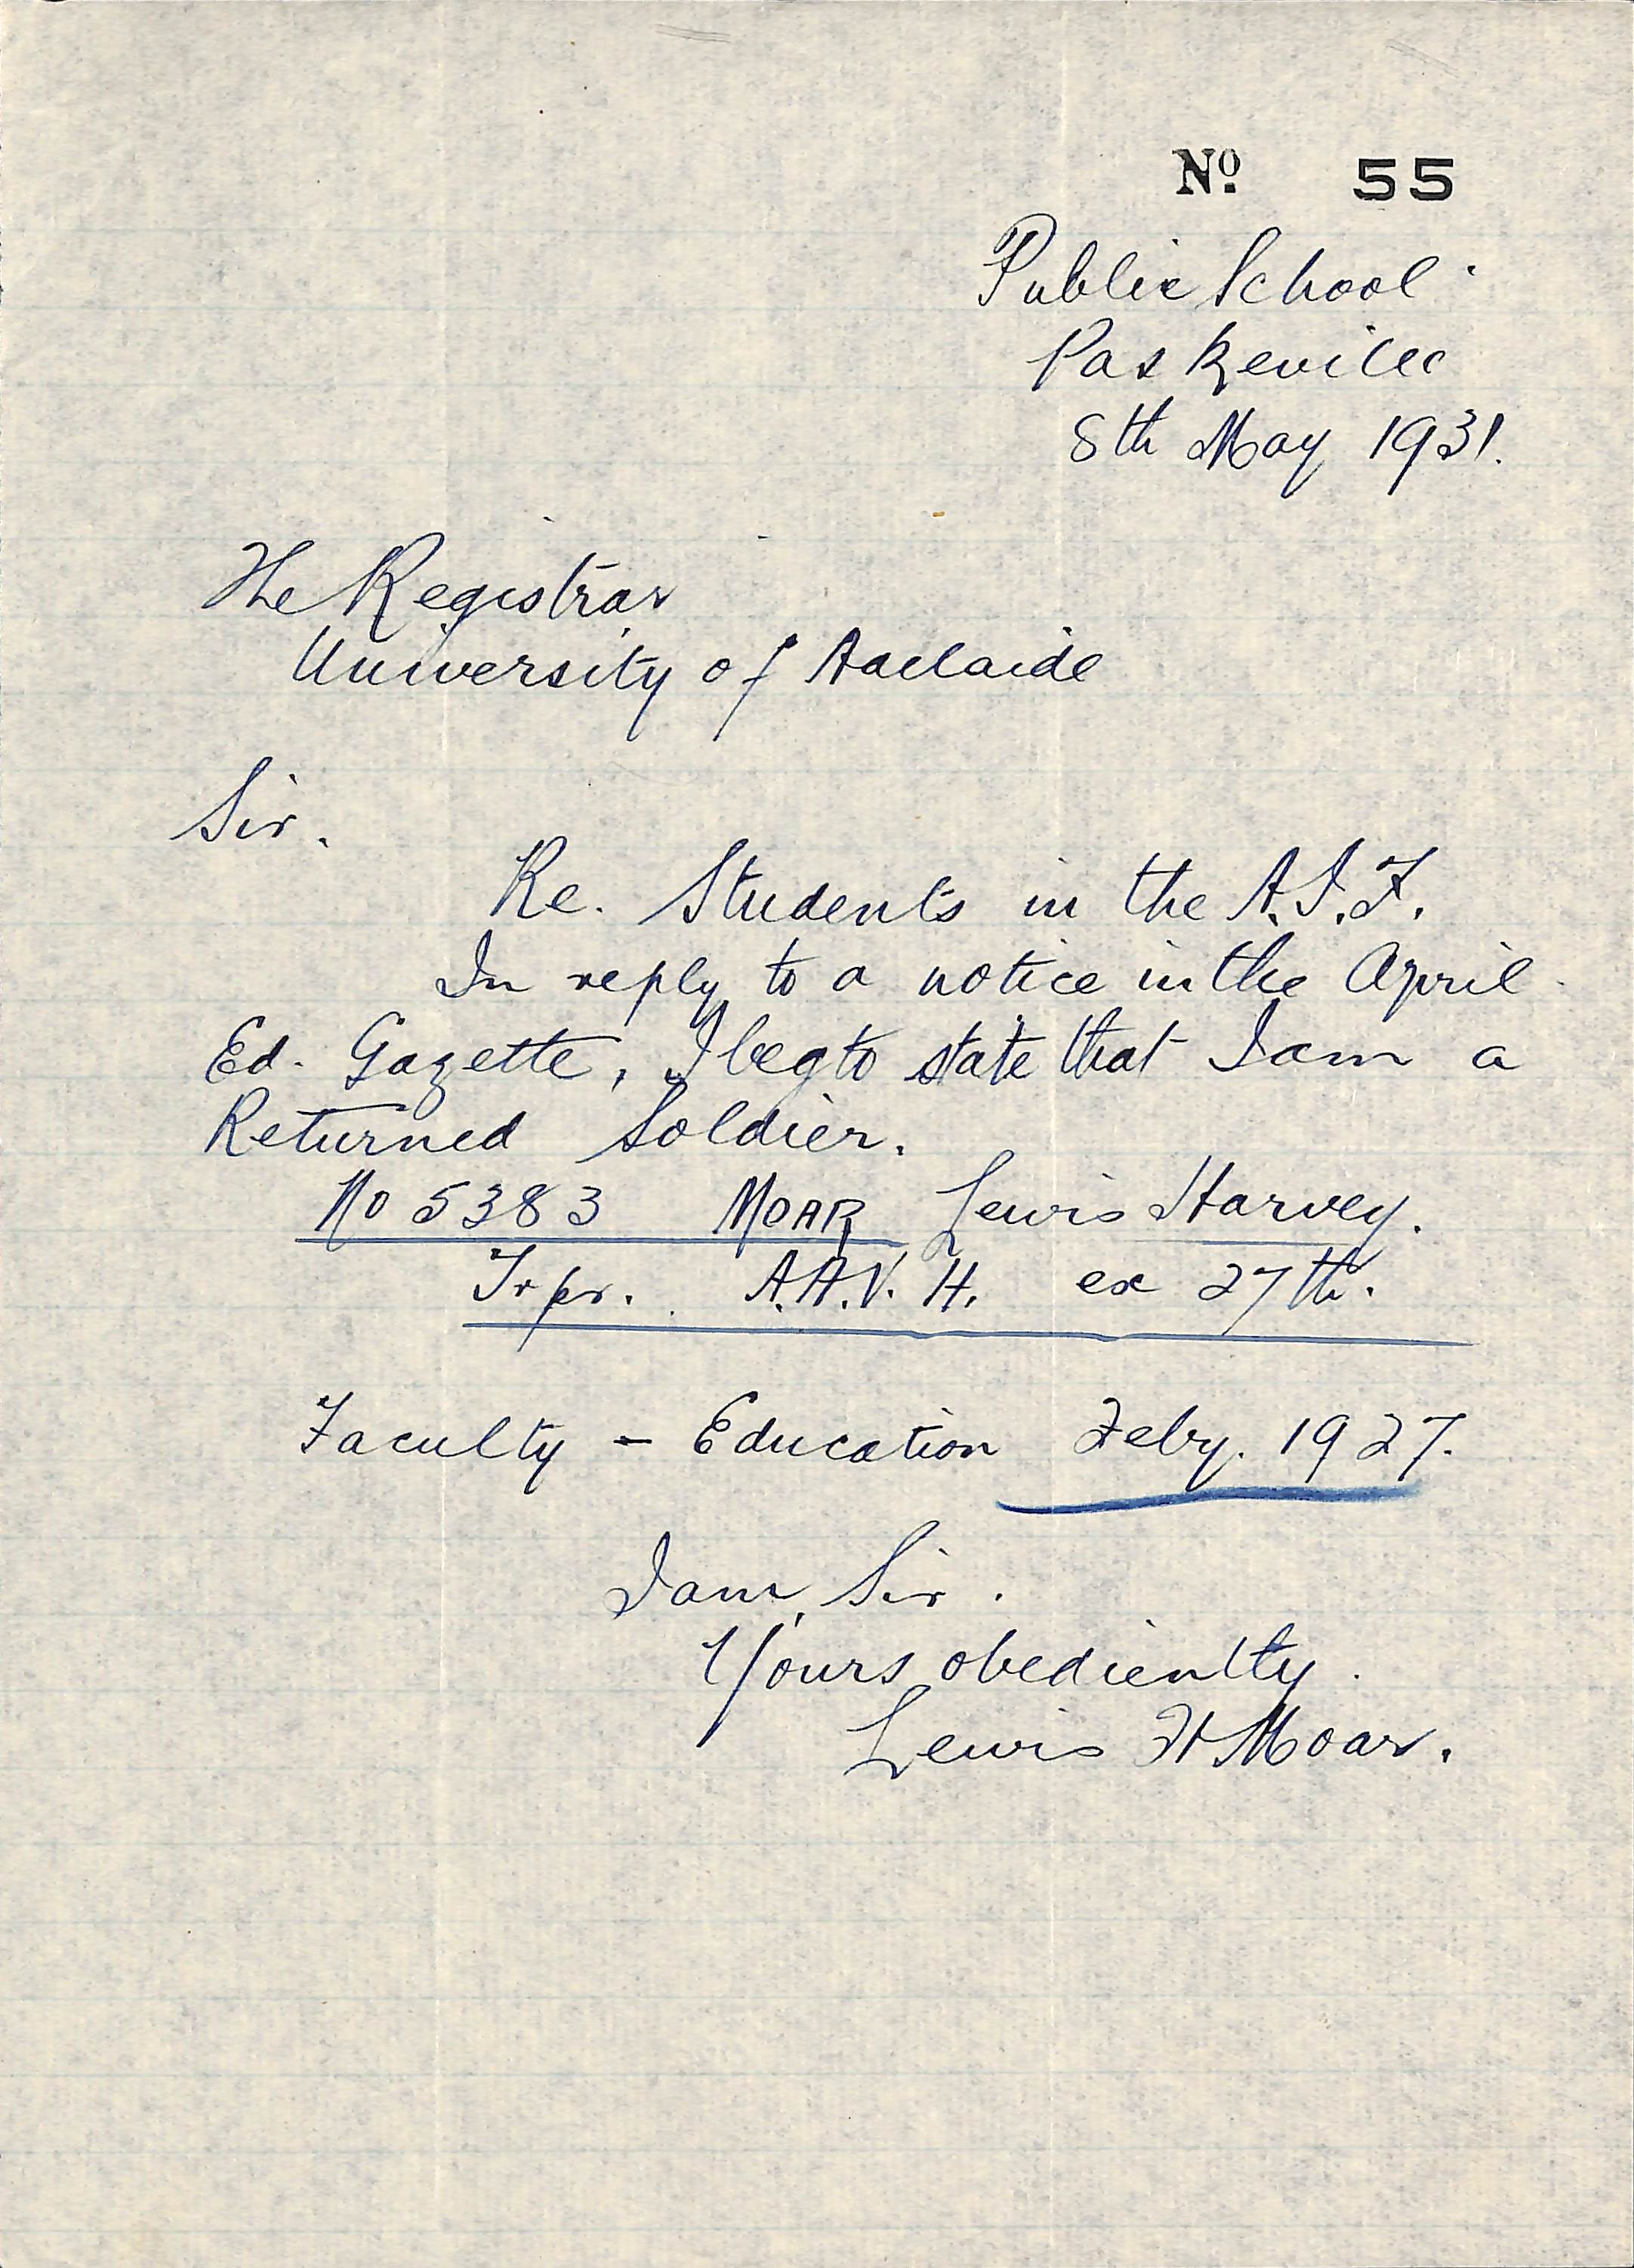 Nº 55
Public School.
Paskeville
8th May 1931.
The Registrar
University of Adelaide
Sir.
Re. Students in the A.I.F.
In reply to a notice in the April
Ed. Gazette, I beg to state that I am a
Returned Soldier.
No 5383 MOAR Lewis Harvey.
Trpr. A.A.V.H. ex 27th.
Faculty - Education Feby. 1927.
I am, Sir.
Yours obediently.
Lewis H Moar.